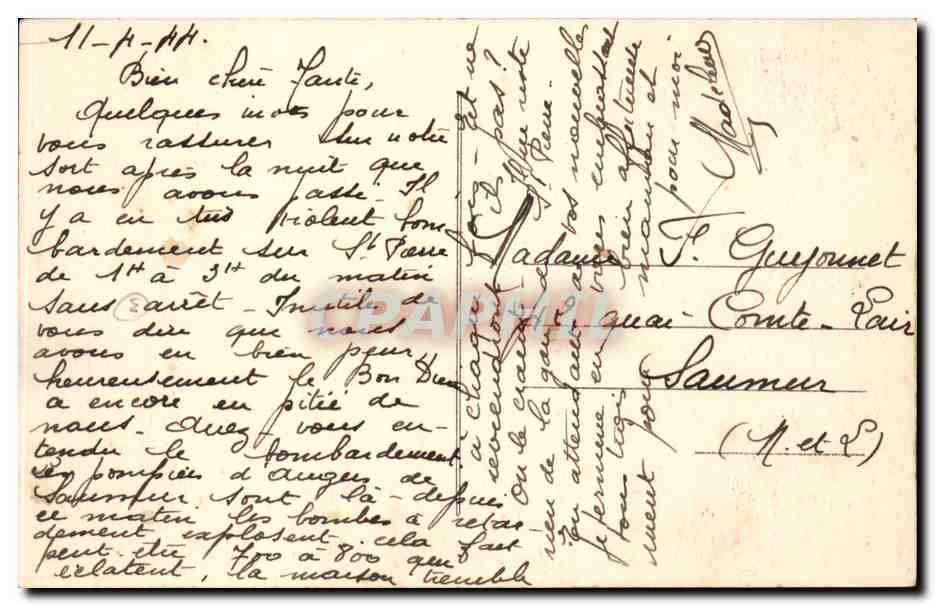 11-4-44.
Bien chère Tante,
Quelques mots pour
vous rassurer sur notre
sort après la nuit que
nous avons passé. Il
y a eu un violent bom
bardement sur St Pierre
de 1H à 3H du matin
sans arrêt - Inutile de
vous dire que nous
avons eu bien peur,
heureusement le Bon Dieu
a encore eu pitié de
nous. Avez vous en-
tendu le bombardement.
Les pompiers d'Angers de
Saumur sont là - depuis
ce matin les bombes à retar
dement explosent cela fait
peut être 700 à 800 qui
éclatent, la maison tremble
à chaque fois - et ne
reviendront ils pas?
On le craint. Il ne reste
rien de la gare de St Pierre.
J'en attendant de vos nouvelles
je termine en vous embrassant
tous trois bien affectueuse
ment pour maman et
pour moi
Madeleine
Madame F. Guyonnet
42, quai Comte-Lair
Saumur
(M. et L)
CPARPHIL